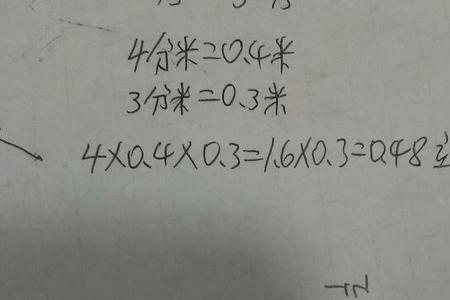 4分米=0.4米
3分米=0.3米
4×0.4×0.3=1.6×0.3=0.48